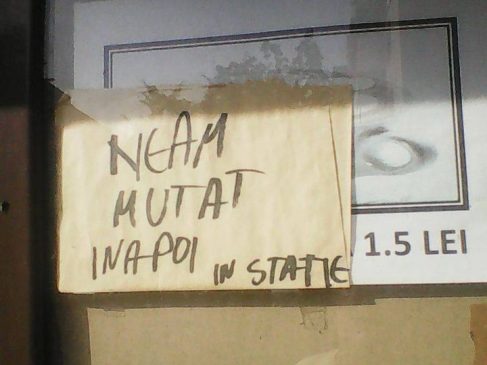 NEAM
MUTAT
INAPOI IN STATIE
1.5 LEI